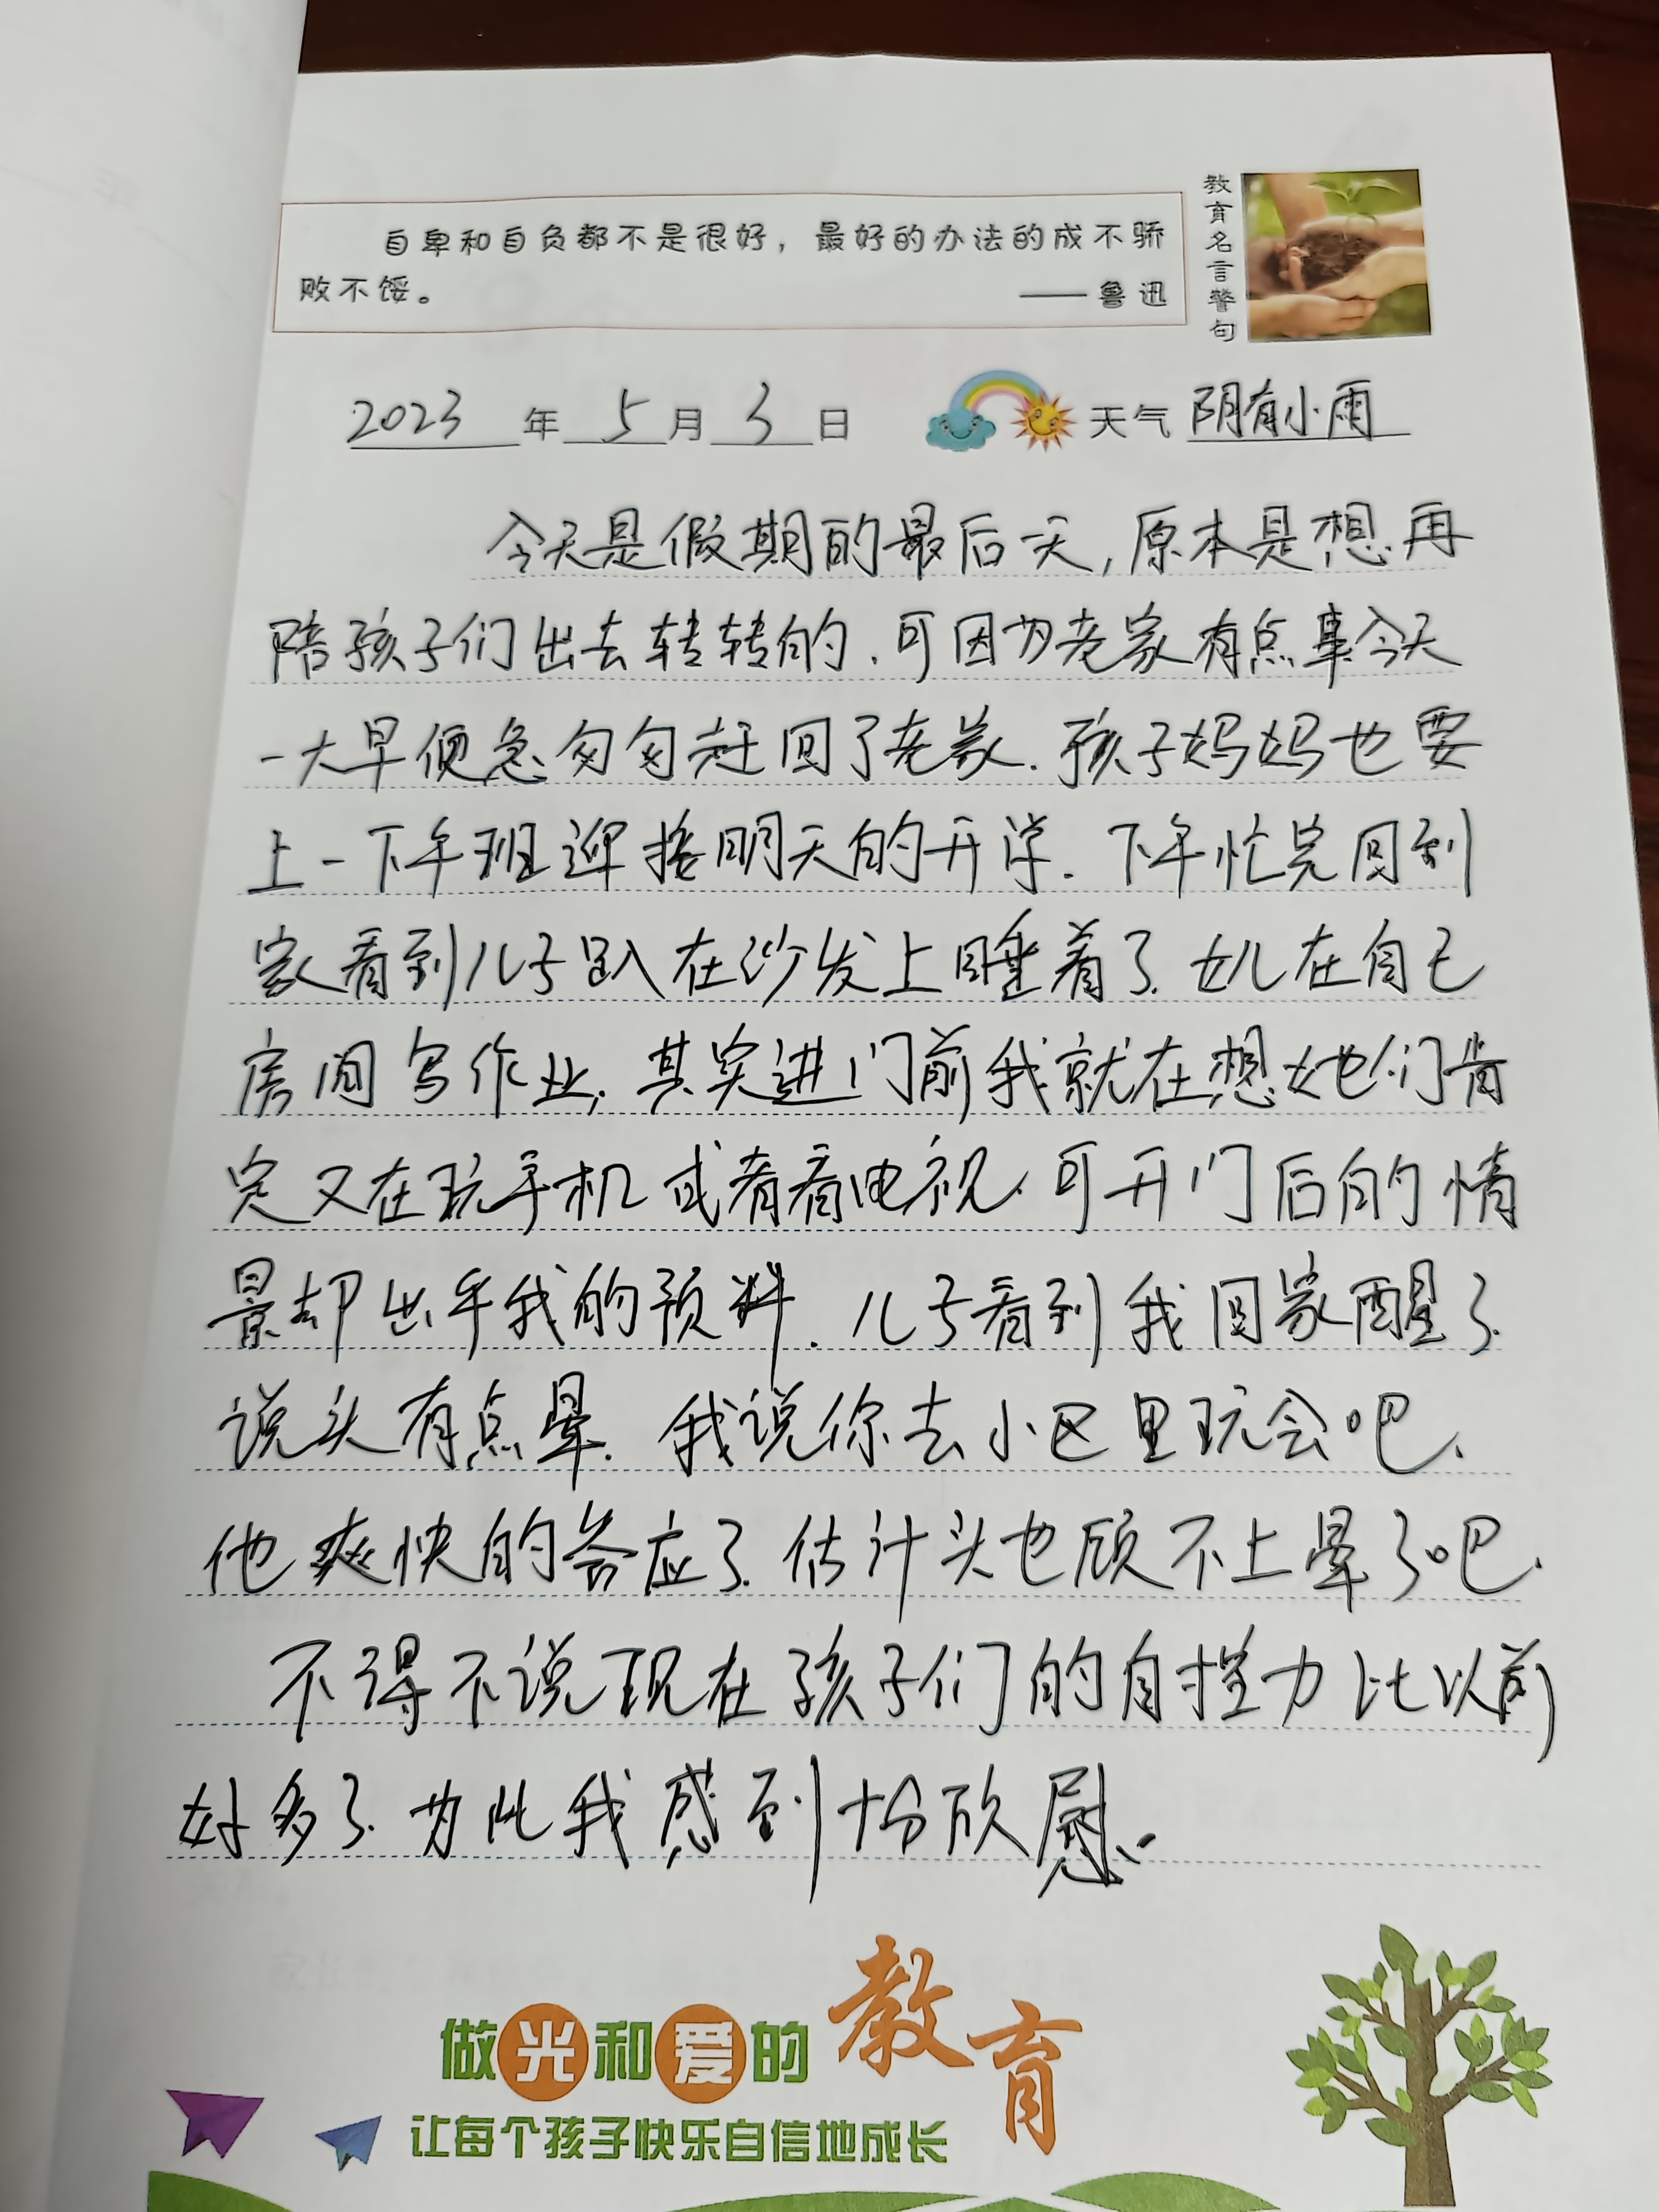 自卑和自负都不是很好，最好的办法的成不骄
败不馁。
——鲁迅
教育名言警句
2023年5月3日 天气 阴有小雨
今天是假期的最后一天，原本是想再
陪孩子们出去转转的.可因为老家有点事今天
一大早便急匆匆赶回了老家.孩子妈妈也要
上一下午班迎接明天的开学.下午忙完回到
家看到儿子趴在沙发上睡着了.女儿在自己
房间写作业.其实进门前我就在想她们肯
定又在玩手机或者看电视.可开门后的情
景却出乎我的预料.儿子看到我回家醒了.
说头有点晕.我说你去小区里玩会吧.
他爽快的答应了.估计头也顾不上晕了吧.
不得不说现在孩子们的自控力比以前
好多了.为此我感到十分欣慰.
做光和爱的教育
让每个孩子快乐自信地成长